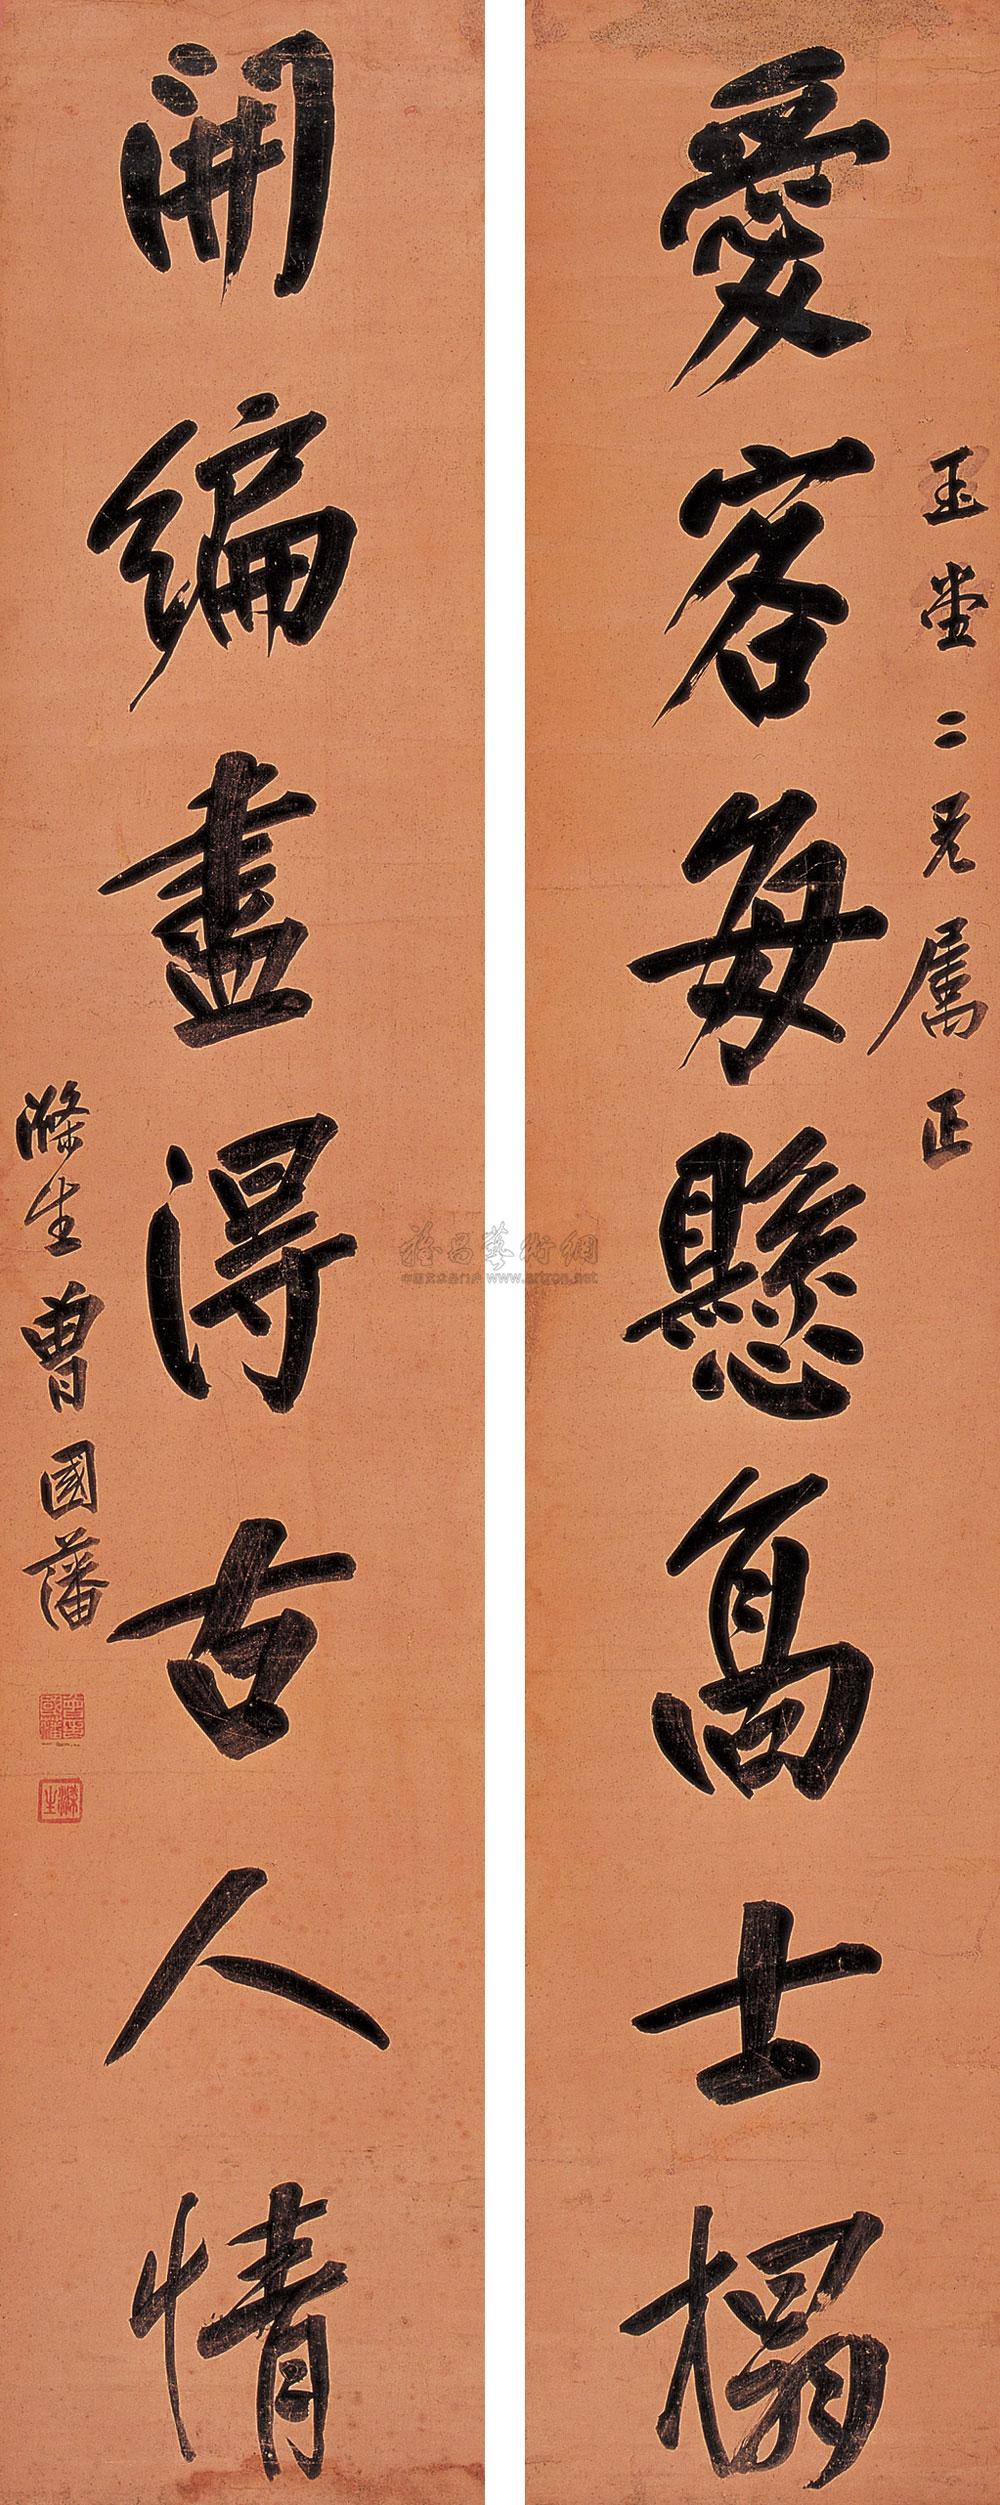 愛客每懸高士榻
玉堂二兄屬正
開編盡得古人情
滌生曾國藩
曾國藩印
滌生
雅昌藝術網
www.artron.net